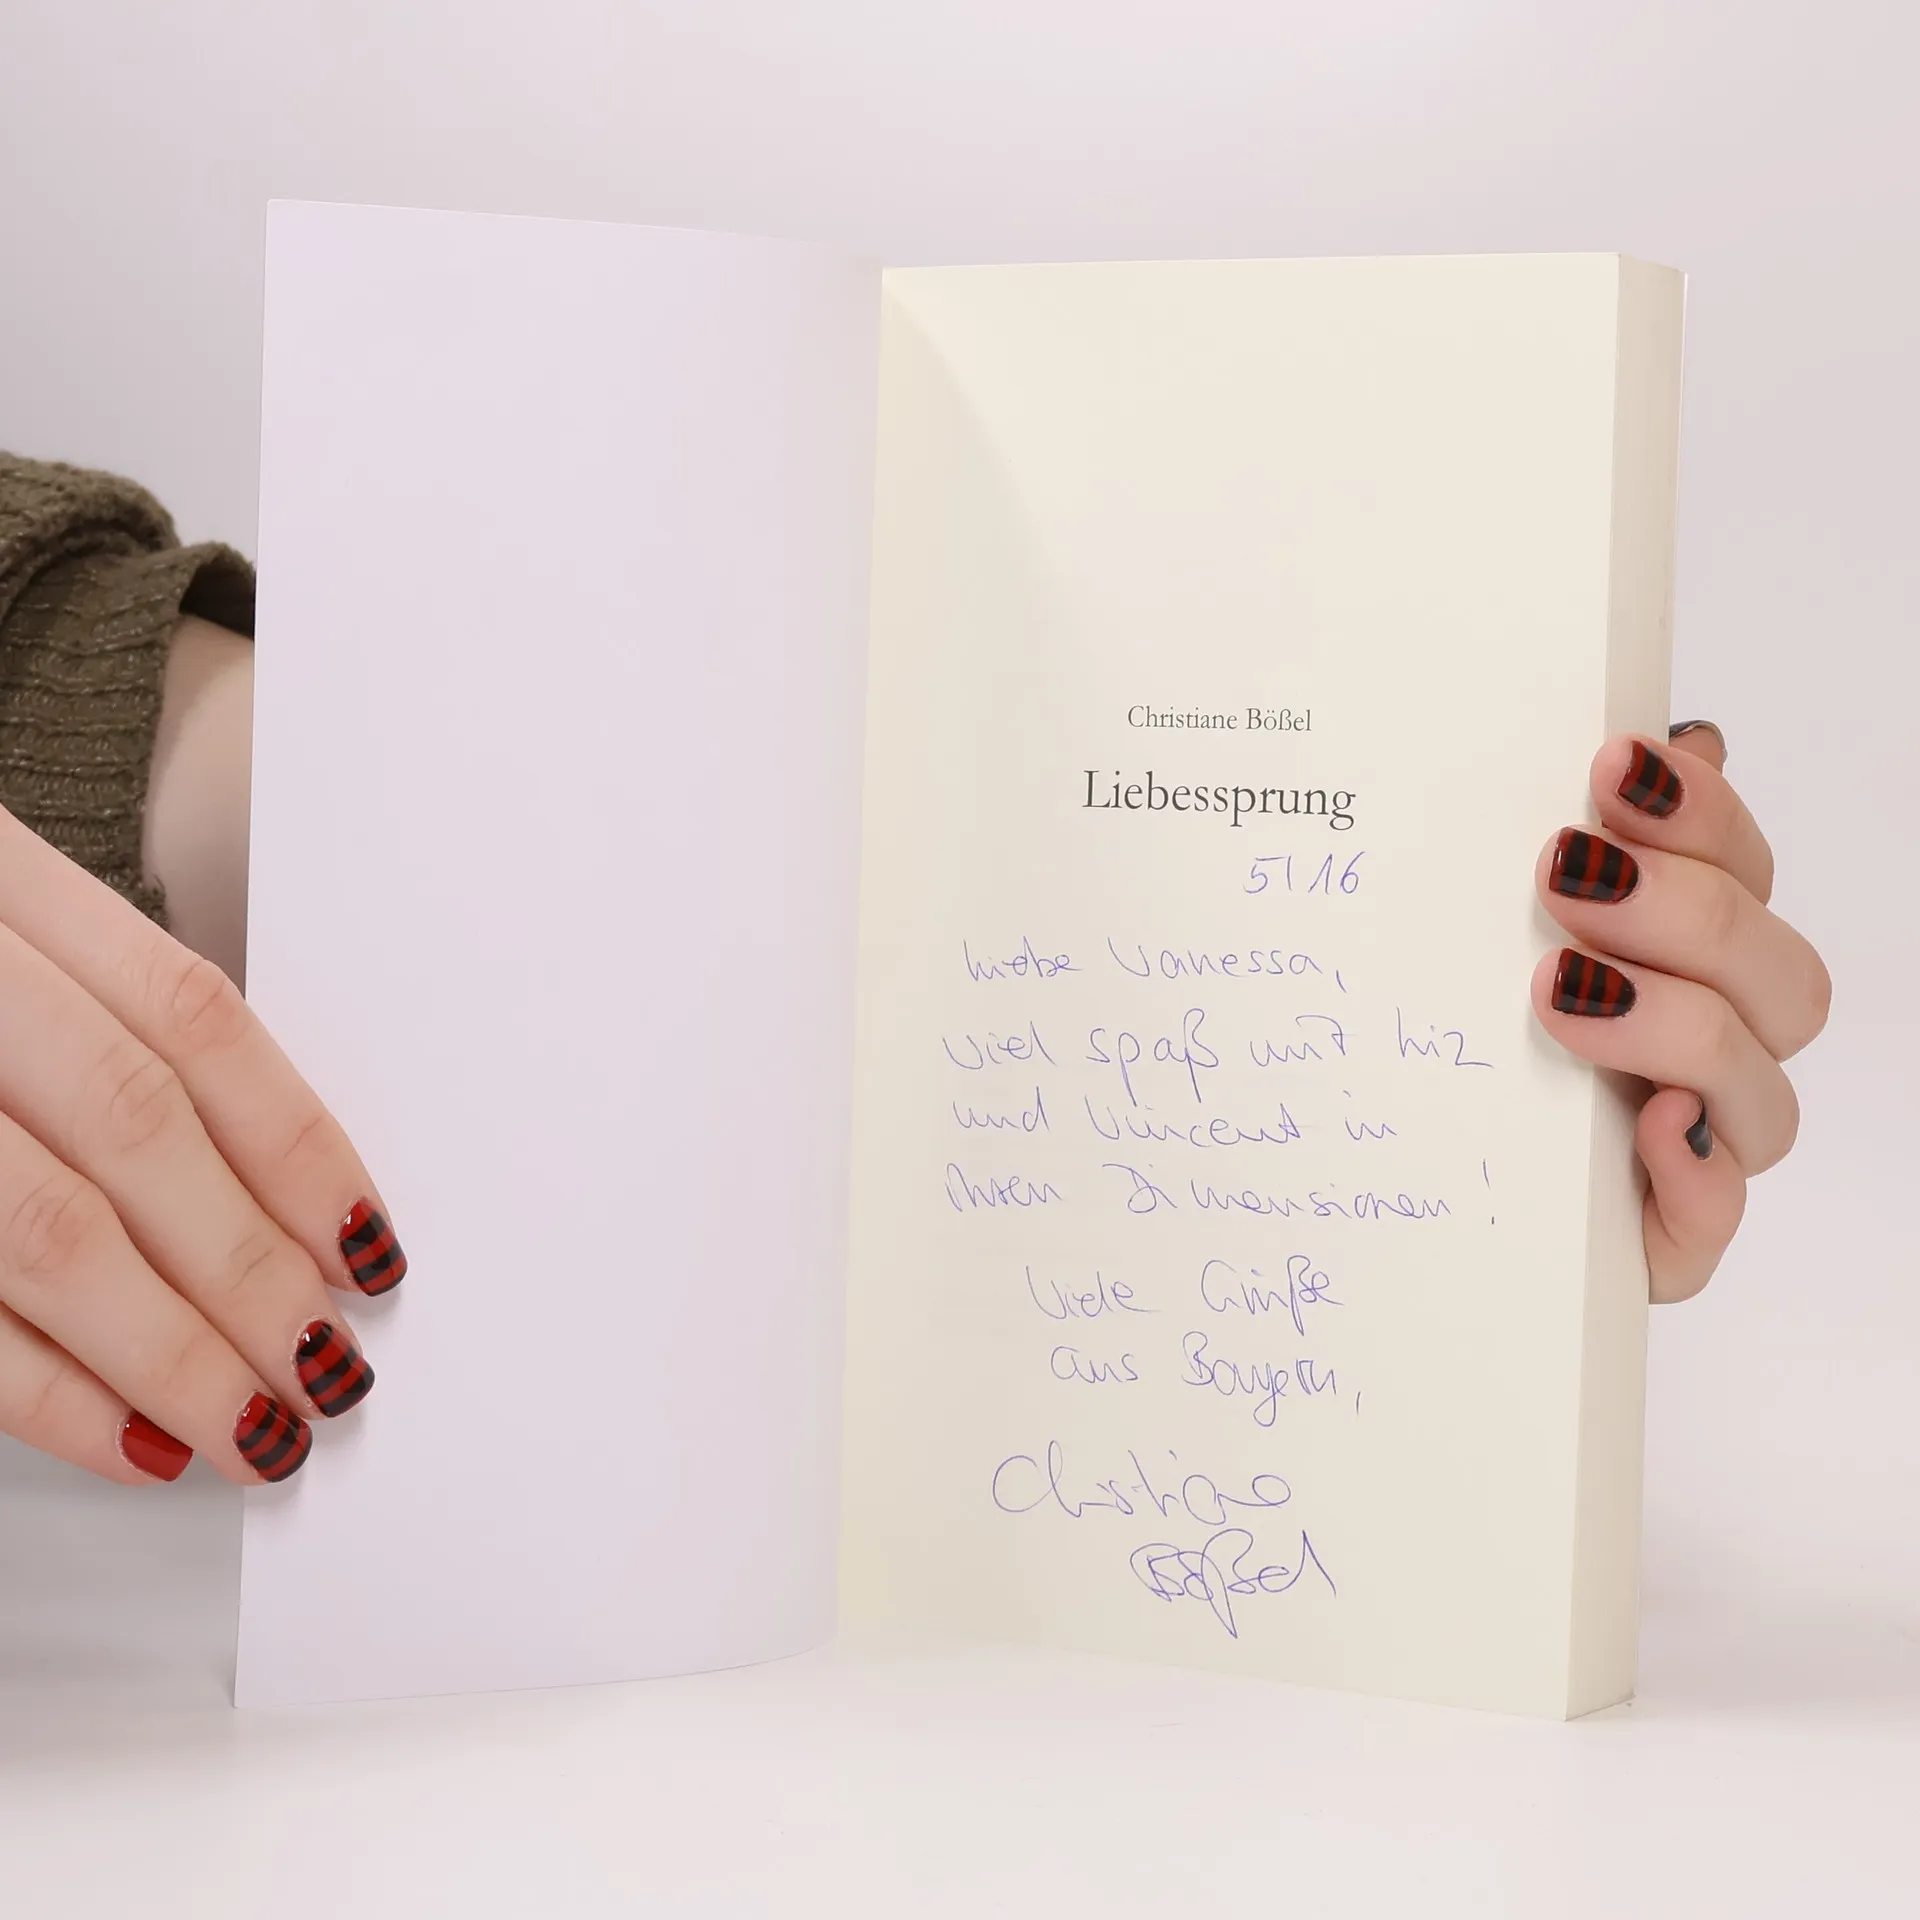 Christiane Bößel
Liebessprung
5/16
Liebe Vanessa,
viel spaß mit Liz
und Vincent in
Ihren Dimensionen!
Viele Grüße
aus Bayern,
Christiane
Bößel